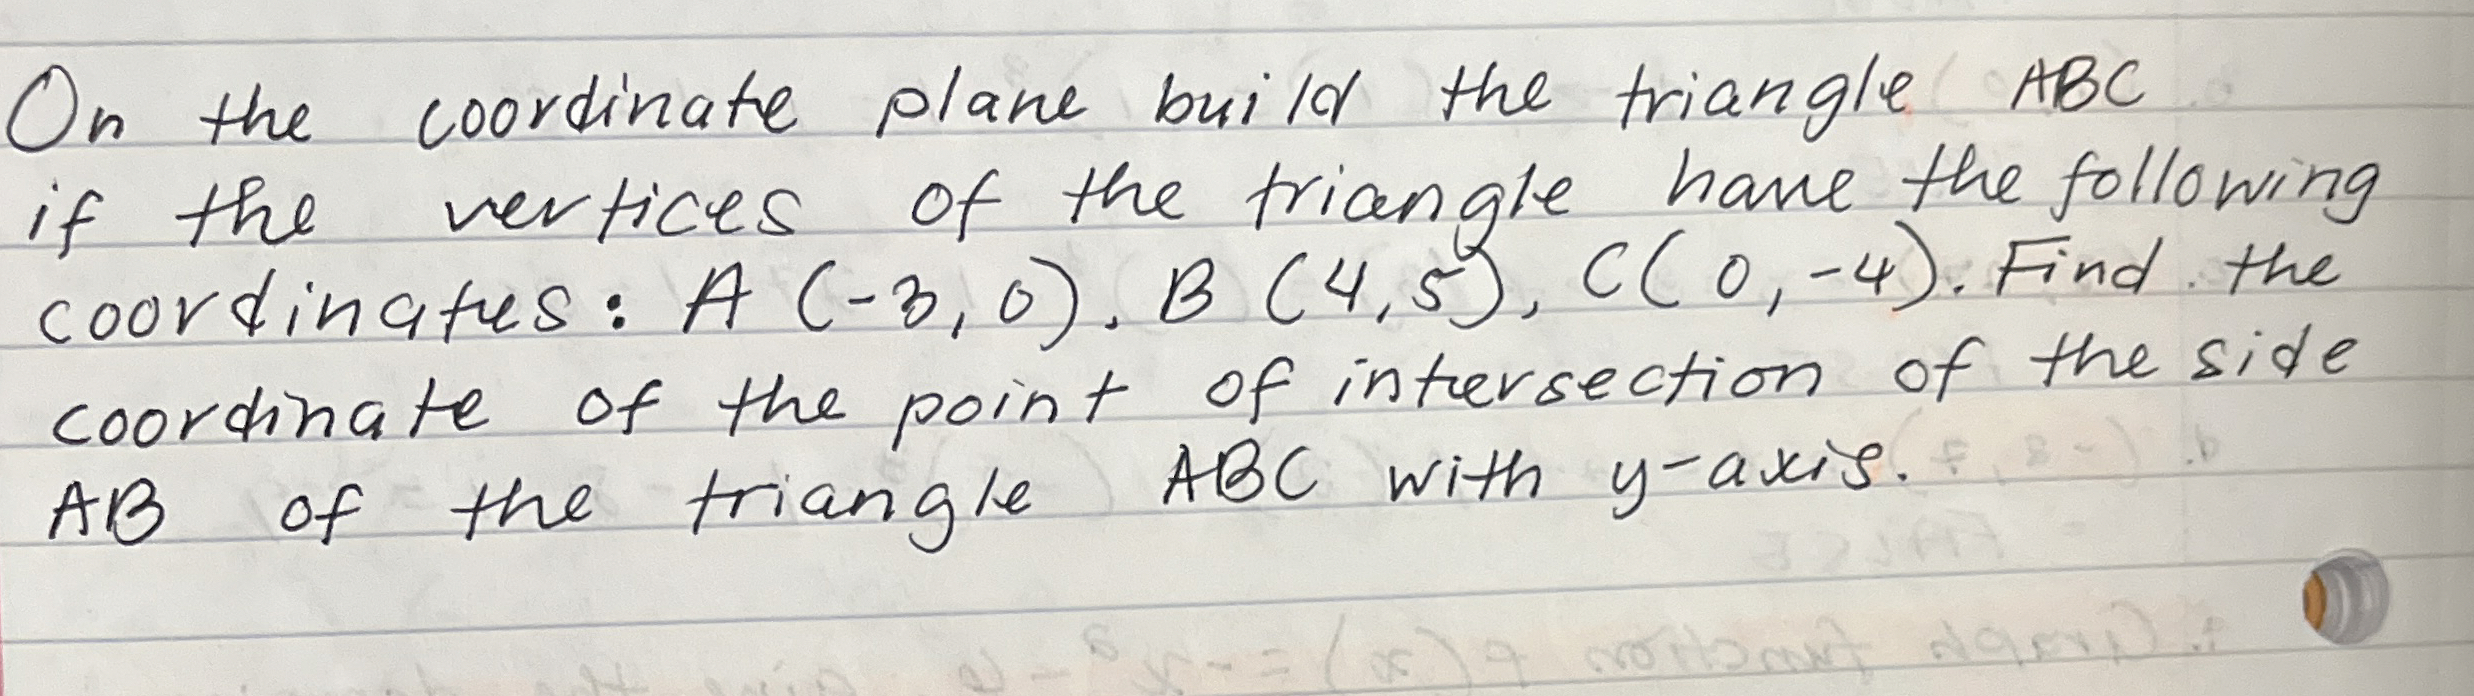 On the coordinate plane build the triangle ABC
if the vertices of the triangle have the following
coordinates: A (-3, 0), B (4, 5), C (0, -4). Find the
coordinate of the point of intersection of the side
AB of the triangle ABC with y-axis.
FALSE
: Graph function f(x) = -x² - 6